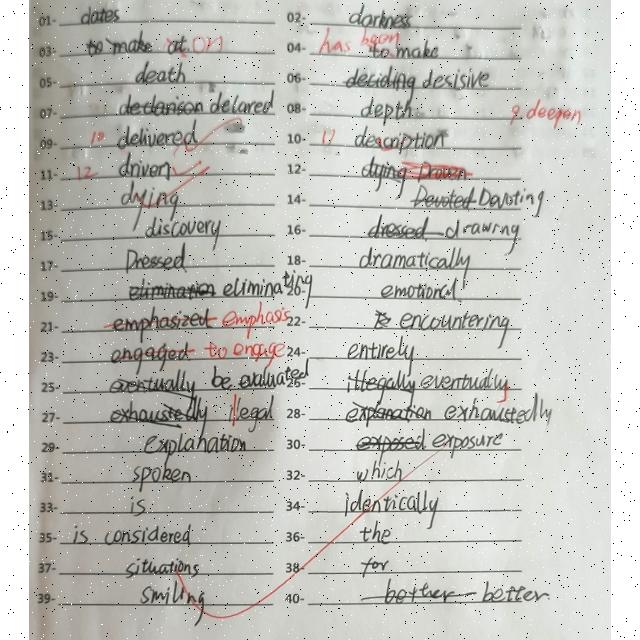 01- dates 02- darkness
03- to make at on 04- has been to make
05- death 06- deciding desisive
07- declarison delared 08- depth 9 deepen
09- 10 delivered 10- 11 description
11- 12 driven 12- dying Drawn
13- dying 14- Devoted Devoting
15- discovery 16- dressed drawing
17- Dressed 18- dramatically
19- elimination eliminating 20- emotional
21- emphasized emphasis 22- encountering
23- engaged to engage 24- entirely
25- eventually be evaluated 26- illegally eventually
27- exhaustedly illegal 28- explanation exhaustedly
29- explanation 30- exposed exposure
31- spoken 32- which
33- is 34- identically
35- is considered 36- the
37- situations 38- for
39- smiling 40- bether better